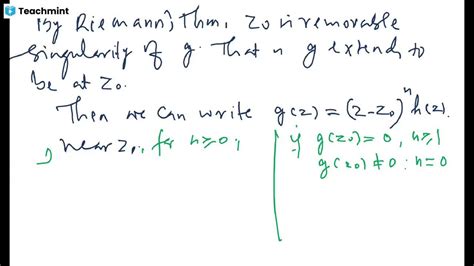 Teachmint
By Riemann's Thm, z₀ is removable
singularity of g. That is g extend to
be at z₀.
Then we can write g(z) = (z-z₀)ⁿ h(z).
near z₀, for n≥0,
if g(z₀)=0, n≥1
g(z₀)≠0 : n=0